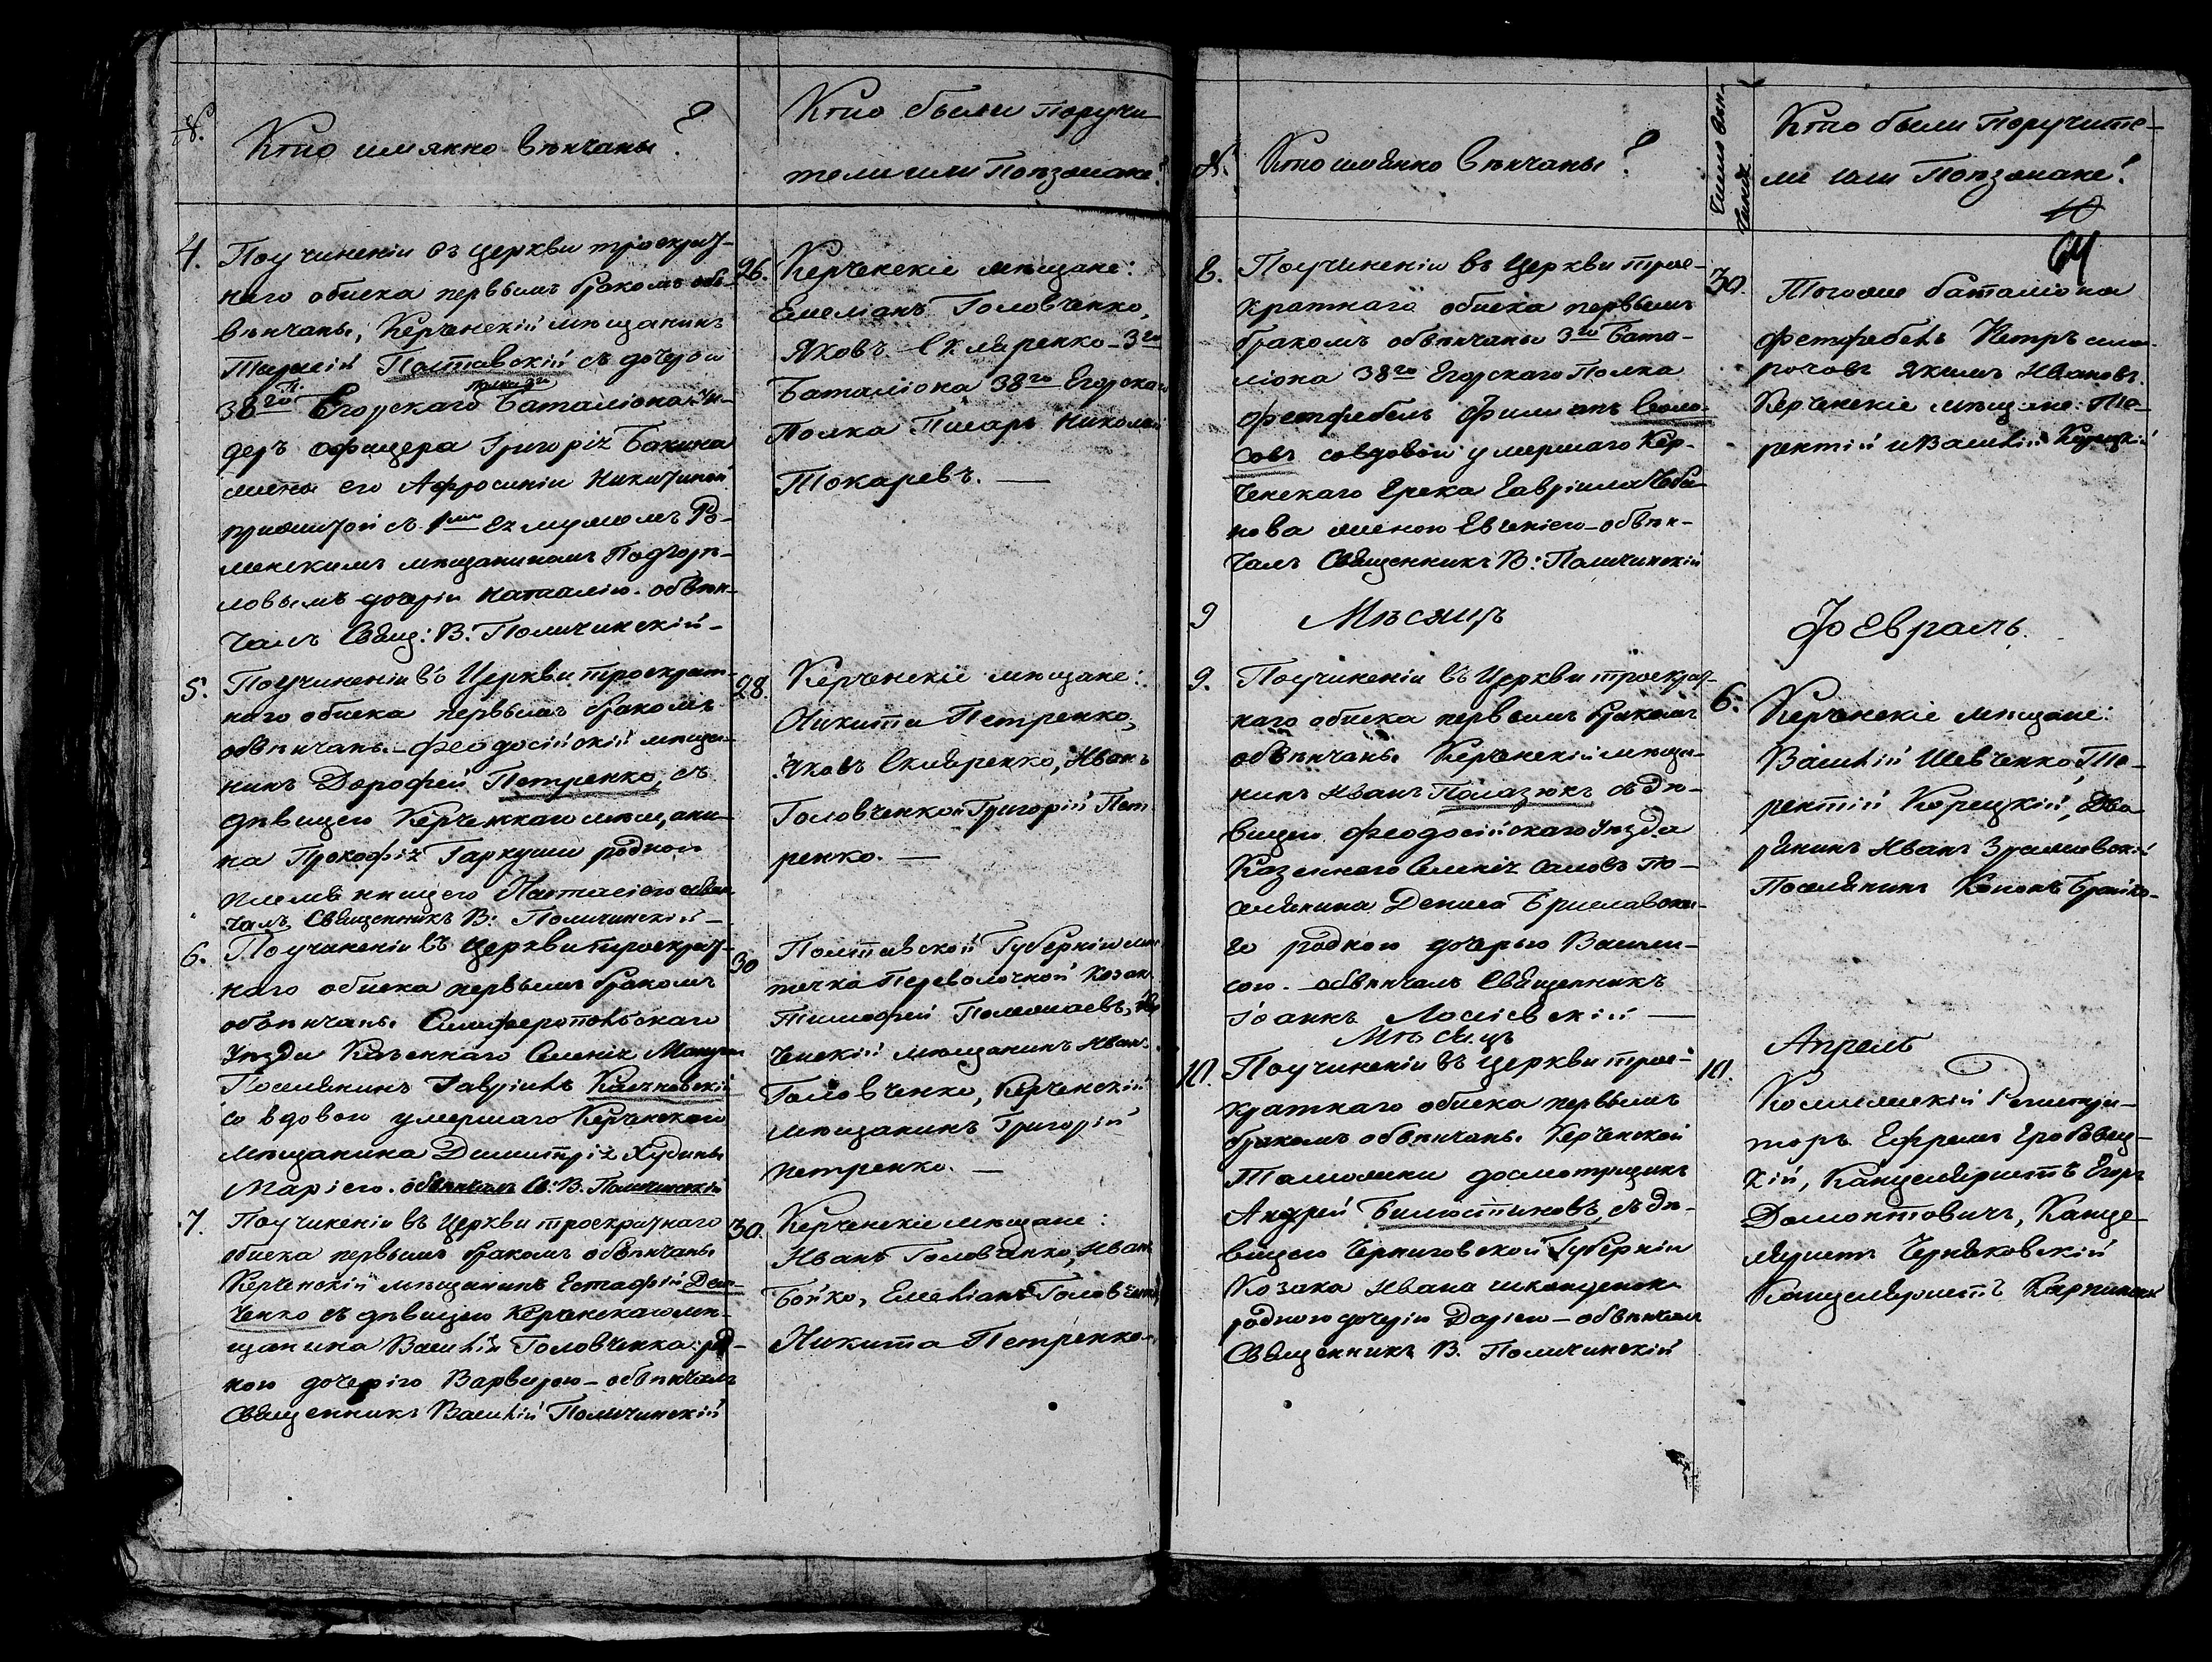 №.
Кто имянно вѣнчаны?
Кто были Поручи
тели или Поѣзжане?
4. По учиненіи въ церкви троекрат-
наго обыска первымъ бракомъ об-
вѣнчаны, Керченскій мѣщанинъ
Полтавскій съ дочерью
38го Егорскаго полка 3го Баталіона Ун-
деръ офицера Григорія Бакина
жены его Афросиніи Никитиной
прижитой съ 1мъ ея мужемъ Ро-
менскимъ мѣщаниномъ Подгор-
ловымъ дочерію Наталіею. обвѣн-
чалъ Свящ: В. Поличинскій-
26. Керченскіе мѣщане:
Емеліанъ Головченко,
Яковъ Скляренко-3го
Баталіона 38го Егорскаго
Полка Писарь Николай
Токаревъ. —
5. По учиненіи въ Церкви троекрат-
наго обыска первымъ бракомъ
обвѣнчаны. Феодосійскій мѣща-
нинъ Дорофей Петренко, съ
дѣвицею Керченскаго мѣщани-
на Прокофія Гаркуши родною
племянницею Настасіею обвѣн-
чалъ Священникъ В: Поличинскій-
28. Керченскіе мѣщане:
Никита Петренко,
Яковъ Скляренко, Иванъ
Головченко и Григорій Пет
ренко. —
6. По учиненіи въ церкви троекрат-
наго обыска первымъ бракомъ
обвѣнчаны Симферопольскаго
Уѣзда Казеннаго Селенія
Поселянинъ Гавріилъ
со вдовою умершаго Керченскаго
Мѣщанина Димитрія Худины
Маріею. обвѣнчалъ С: В. Поличинскій
30 Полтавской Губерніи мѣс
течка Переволочной Козакъ
Тимофей Поломаевъ, Кер
ченскій мѣщанинъ Иванъ
Головченко, Керченскій
мѣщанинъ Григорій
Петренко. —
7. По учиненіи въ Церкви троекратнаго
обыска первымъ бракомъ обвѣнчаны
Керченскій мѣщанинъ Естафій Дем-
ченко съ дѣвицею Керченскаго мѣ-
щанина Василія Головченка род-
ною дочерію Варварою-обвѣнчалъ
Священникъ Василій Поличинскій
30. Керченскіе мѣщане:
Иванъ Головченко, Иванъ
Бойко, Емеліанъ Головченко,
Никита Петренко.
№.
Кто имянно вѣнчаны?
Число вѣн-
чанія.
Кто были Поручите-
ли или Поѣзжане?
10
64
8. По учиненіи въ Церкви трое-
кратнаго обыска первымъ
бракомъ обвѣнчаны 3го Бата-
ліона 38го Егорскаго Полка
Фелтфебель Филипъ Сломо-
совъ со вдовой умершаго Кер-
ченскаго Грека Гавріила Чоба-
нова женою Евгеніею-обвѣн-
чалъ Священникъ В: Поличинскій
30. Того же баталіона
фелтфебель Петръ
Якимъ Ивановъ.
Керченскіе мѣщане: Те-
рентій и Василій Корецкій
9 Мѣсяцъ
Февраль.
9. По учиненіи въ Церкви троекрат-
наго обыска первымъ бракомъ
обвѣнчаны Керченскій мѣща-
нинъ Иванъ Полазюкъ съ дѣ-
вицею Феодосійскаго Уѣзда
Казеннаго Селенія Саловъ По-
селянина Дениса Бриславска-
го родною дочерью Васили-
сою. - обвѣнчалъ Священникъ
Іоаннъ Лосіевскій —
6. Керченскіе мѣщане:
Василій Шевченко, Те-
рентій Корецкій, Дво
рянинъ Иванъ
Поселянинъ Кононъ
Мѣсяцъ
Апрель
10. По учиненіи въ церкви трое-
кратнаго обыска первымъ
бракомъ обвѣнчаны Керченской
Таможни досмотрщикъ
Андрей Билостиновъ, съ дѣ-
вицею Черниговской Губерніи
Козака Ивана
родною дочерію Даріею-обвѣнчалъ
Священникъ В. Поличинскій
10. Коллежскій Регистра-
торъ Ефремъ
кій, Канцеляристъ Егоръ
Домонтовичъ, Канце-
ляристъ Черняковскій
Канцеляристъ